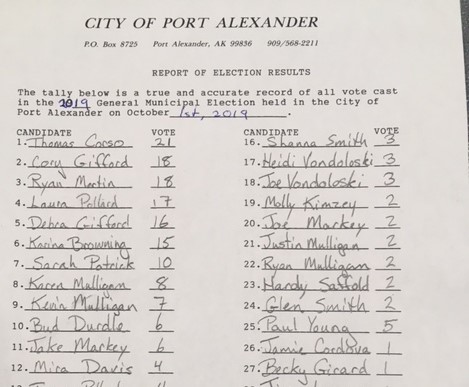 CITY OF PORT ALEXANDER
P.O. Box 8725 Port Alexander, AK 99836 909/568-2211
REPORT OF ELECTION RESULTS
The tally below is a true and accurate record of all vote cast
in the 2019 General Municipal Election held in the City of
Port Alexander on October 1st, 2019.
CANDIDATE VOTE
1. Thomas Corso 21
2. Cory Gifford 18
3. Ryan Martin 18
4. Laura Pollard 17
5. Debra Gifford 16
6. Karina Browning 15
7. Sarah Patrick 10
8. Karen Mulligan 8
9. Kevin Mulligan 7
10. Bud Durdle 6
11. Jake Markey 6
12. Mira Davis 4
CANDIDATE VOTE
16. Shanna Smith 3
17. Heidi Vondoloski 3
18. Joe Vondoloski 3
19. Molly Kimzey 2
20. Joe Markey 2
21. Justin Mulligan 2
22. Ryan Mulligan 2
23. Hardy Saffold 2
24. Glen Smith 2
25. Paul Young 5
26. Jamie Cordova 1
27. Becky Girard 1